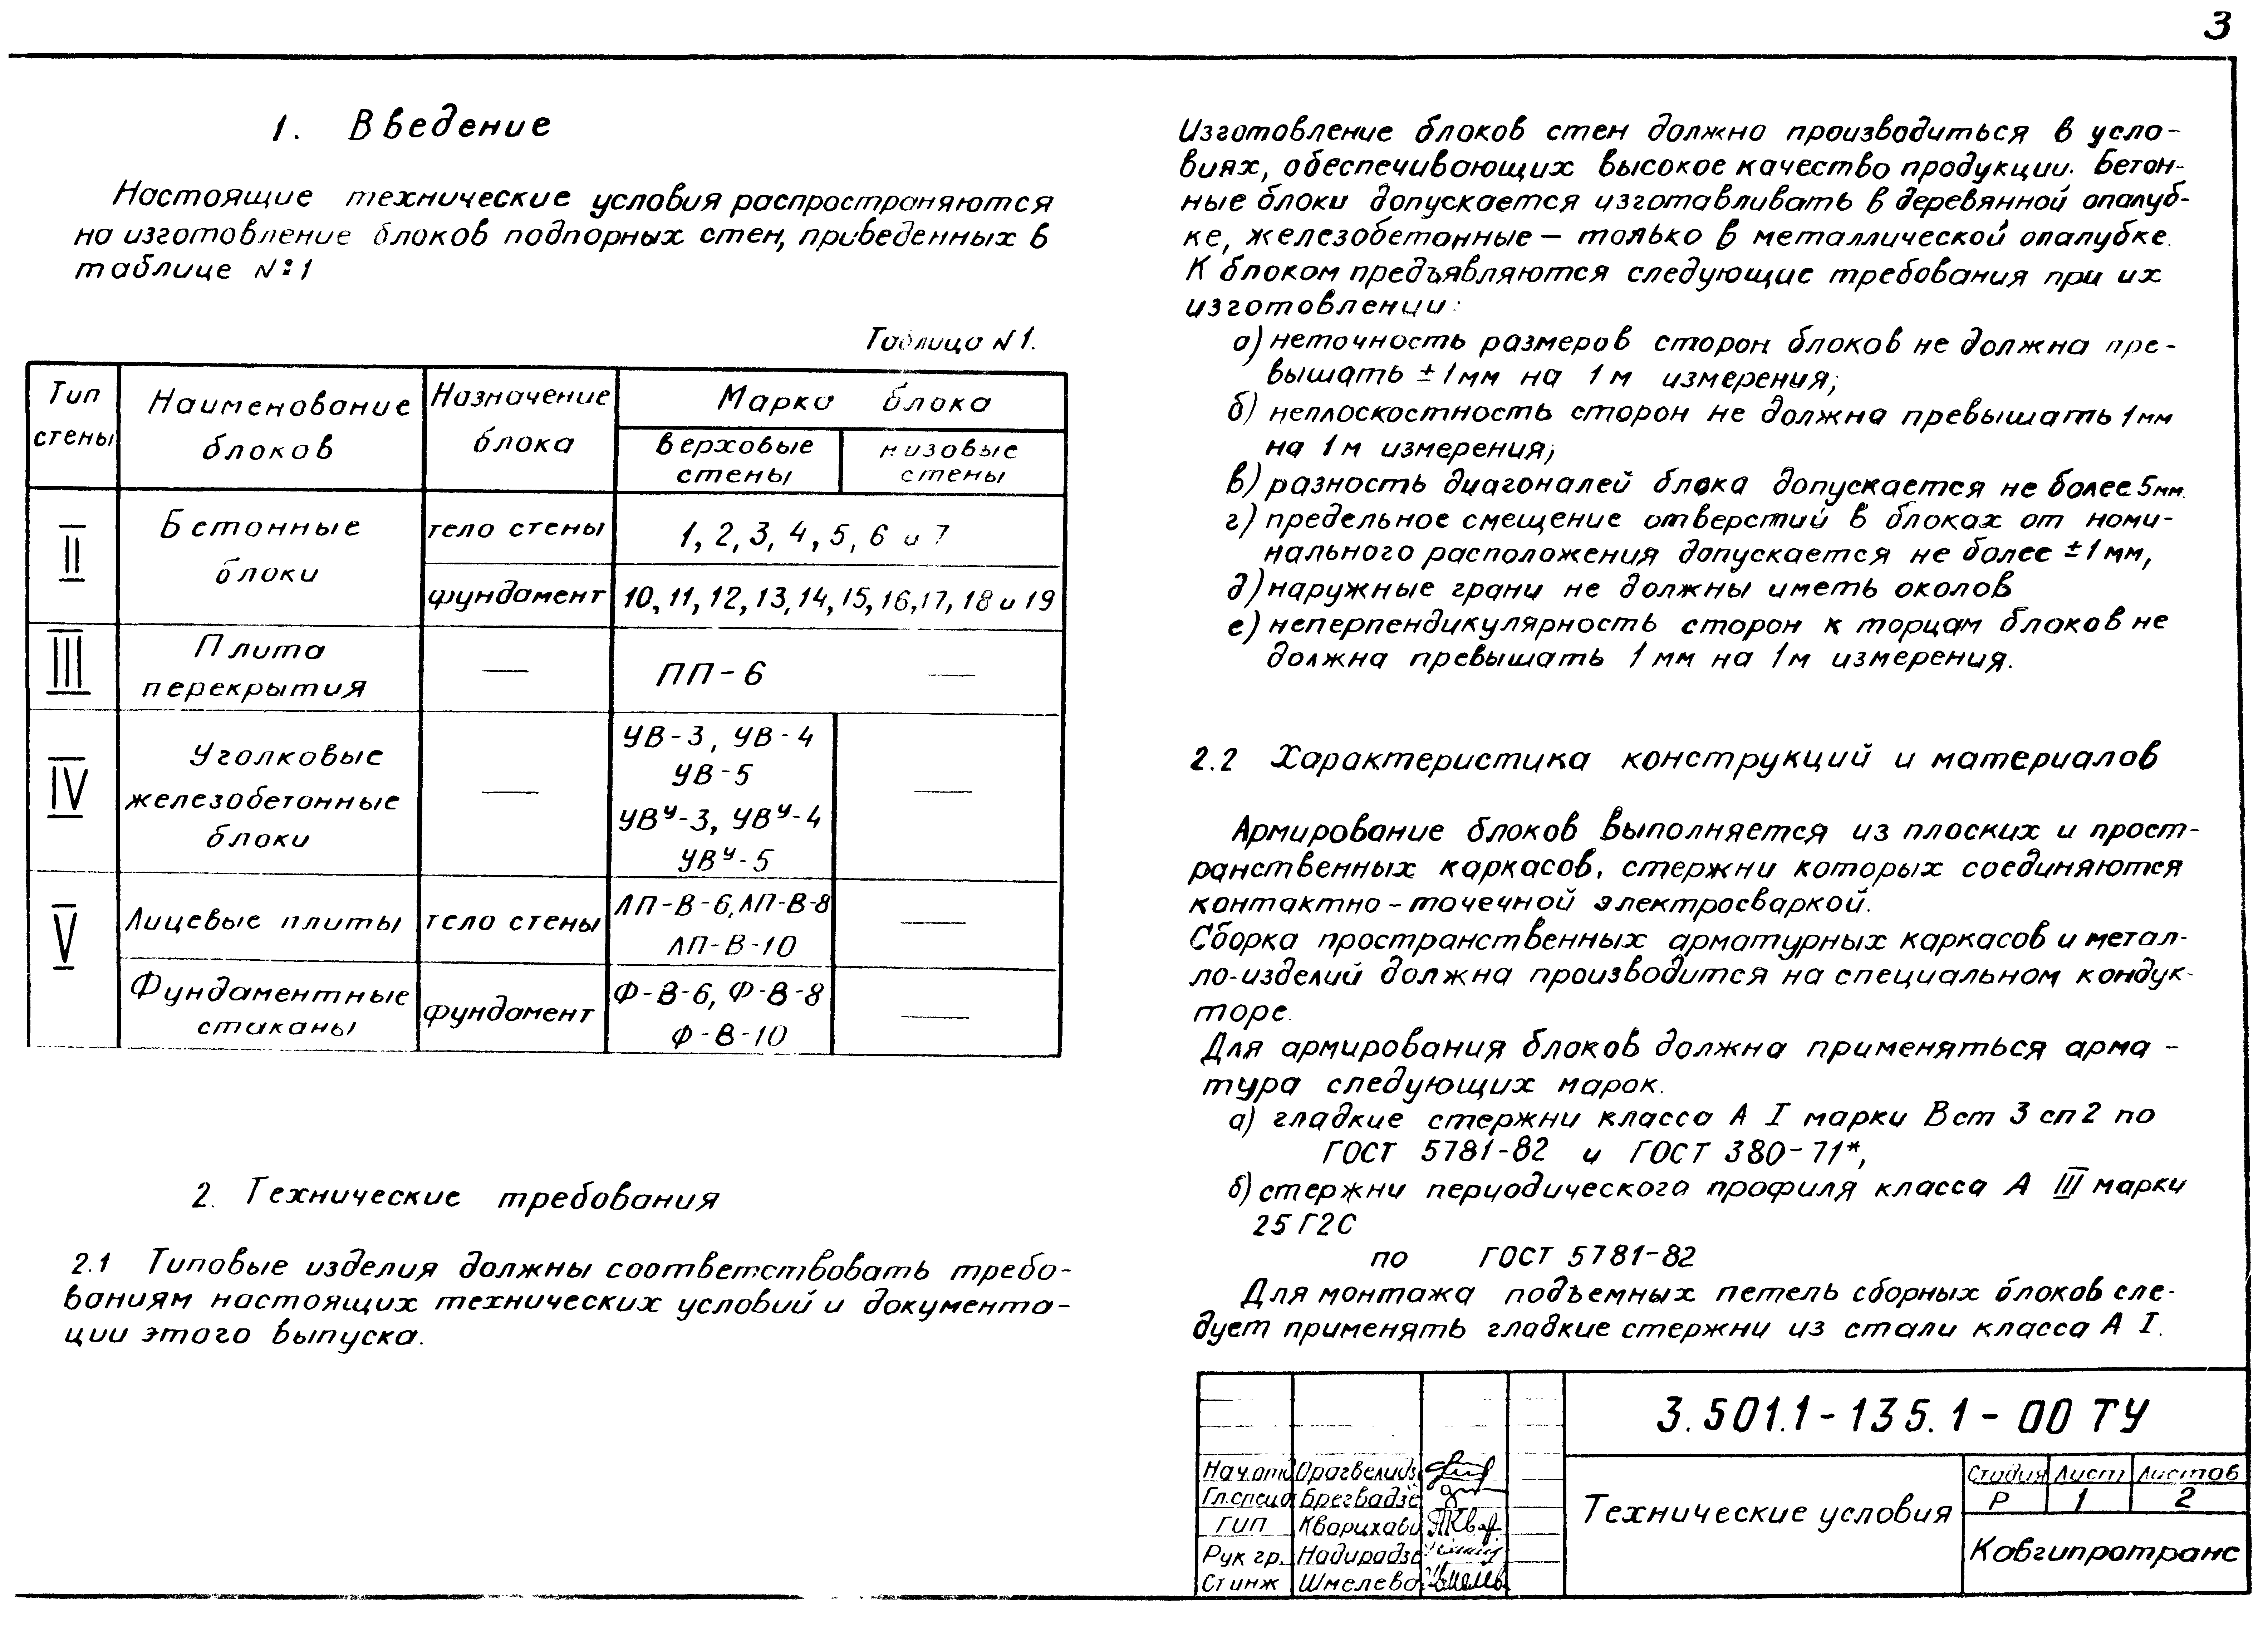 3
1. Введение
Настоящие технические условия распространяются
на изготовление блоков подпорных стен, приведенных в
таблице №1
Таблица №1.
Тип стены
Наименование блоков
Назначение блока
Марка блока
верховые стены
низовые стены
II
Бетонные блоки
тело стены
1, 2, 3, 4, 5, 6 и 7
фундамент
10, 11, 12, 13, 14, 15, 16, 17, 18 и 19
III
Плита перекрытия
—
ПП-6
—
IV
Уголковые железобетонные блоки
—
УВ-3, УВ-4
УВ-5
УВу-3, УВу-4
УВу-5
—
V
Лицевые плиты
тело стены
ЛП-В-6, ЛП-В-8
ЛП-В-10
—
Фундаментные стаканы
фундамент
Ф-В-6, Ф-В-8
Ф-В-10
—
2. Технические требования
2.1 Типовые изделия должны соответствовать требо-
ваниям настоящих технических условий и документа-
ции этого выпуска.
Изготовление блоков стен должно производиться в усло-
виях, обеспечивающих высокое качество продукции. Бетон-
ные блоки допускается изготавливать в деревянной опалуб-
ке, железобетонные — только в металлической опалубке.
К блокам предъявляются следующие требования при их
изготовлении:
а) неточность размеров сторон блоков не должна пре-
вышать ±1мм на 1м измерения;
б) неплоскостность сторон не должна превышать 1мм
на 1м измерения;
в) разность диагоналей блока допускается не более 5мм.
г) предельное смещение отверстий в блоках от номи-
нального расположения допускается не более ±1мм,
д) наружные грани не должны иметь околов
е) неперпендикулярность сторон к торцам блоков не
должна превышать 1мм на 1м измерения.
2.2 Характеристика конструкций и материалов
Армирование блоков выполняется из плоских и прост-
ранственных каркасов, стержни которых соединяются
контактно-точечной электросваркой.
Сборка пространственных арматурных каркасов и метал-
ло-изделий должна производится на специальном кондук-
торе.
Для армирования блоков должна применяться арма-
тура следующих марок.
а) гладкие стержни класса А I марки Вст 3 сп2 по
ГОСТ 5781-82 и ГОСТ 380-71*,
б) стержни периодического профиля класса А III марки
25Г2С
по ГОСТ 5781-82
Для монтажа подъемных петель сборных блоков сле-
дует применять гладкие стержни из стали класса А I.
3.501.1-135.1-00 ТУ
Нач.отд Орагвелидз
Гл.спец Брегвадзе
ГИП
Рук гр. Надирадзе
Ст инж Шмелева
Технические условия
Стадия Лист Листов
Р 1 2
Кавгипротранс